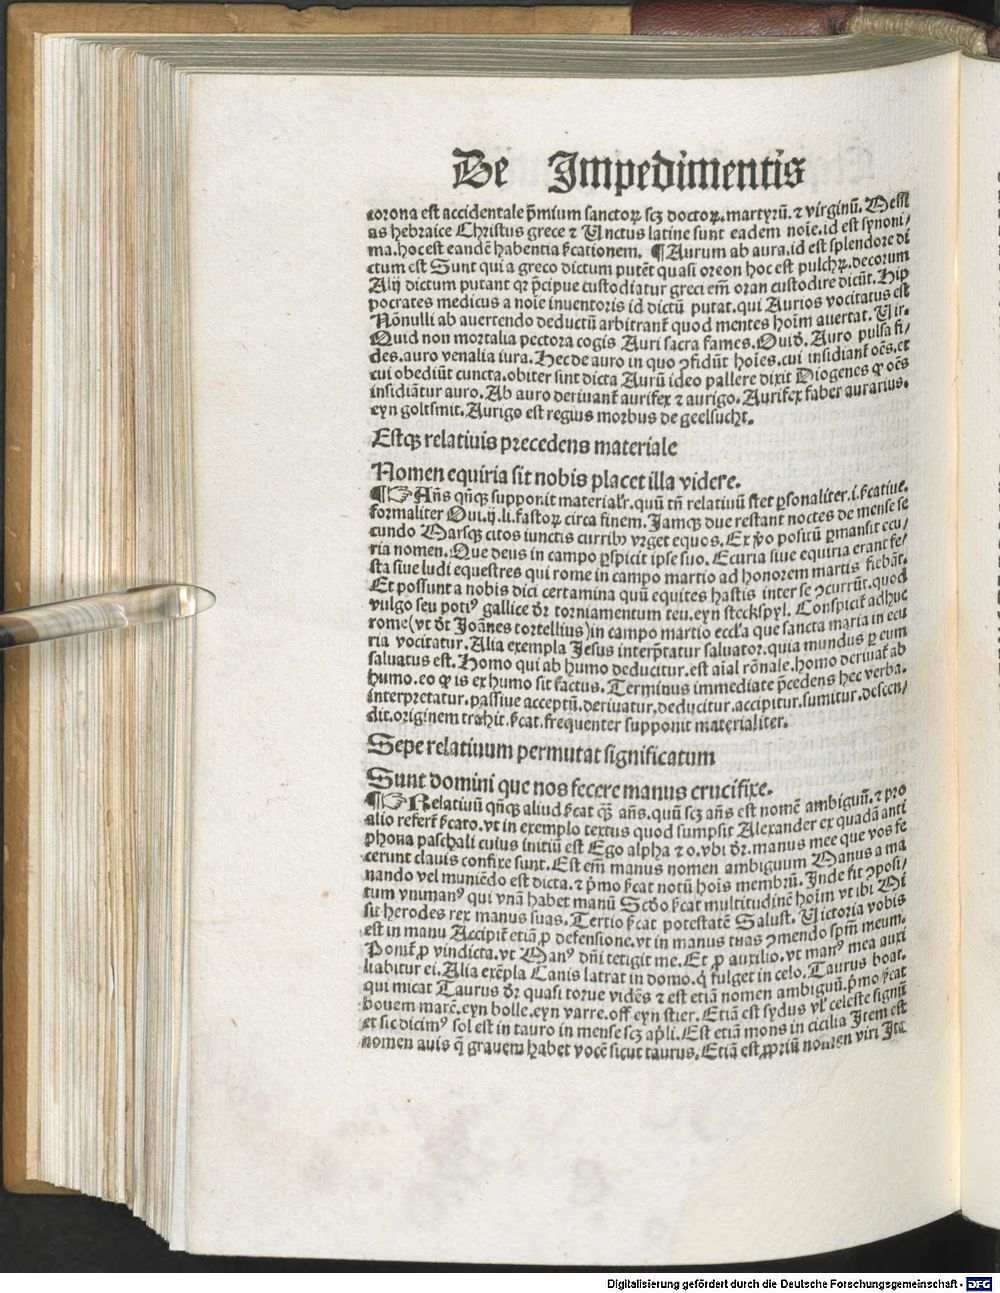 De Impedimentis
corona est accidentale p̄mium sanctoꝝ scꝫ doctoꝝ.martyrū.⁊ virginū.Messi
as hebraice Christus grece ⁊ Unctus latine sunt eadem noīe.id est synoni/
ma.hoc est eandē habentia ſ̄cationem. ¶Aurum ab aura.id est splendore di
ctum est Sunt qui a greco dictum putēt quasi oreon hoc est pulchꝝ.decorum
Alij dictum putant qꝛ p̄cipue custodiatur greci em̄ oran custodire dicūt.Hip
pocrates medicus a noīe inuentoris id dictū putat.qui Aurios vocitatus est
Nōnulli ab auertendo deductū arbitranť quod mentes hoīm auertat. Uir.
Quid non mortalia pectora cogis Auri sacra fames.Ouid̄. Auro pulsa fi/
des.auro venalia iura.Hec de auro in quo ꝯfidūt hoīes.cui insidianť oēs.et
cui obediūt cuncta.obiter sint dicta Aurū ideo pallere dixit Diogenes ꝙ oēs
insidiātur auro.Ab auro deriuanť aurifex ⁊ aurigo.Aurifex faber aurarius.
eyn goltsmit.Aurigo est regius morbus de geelsucht.
Estqꝫ relatiuis precedens materiale
Nomen equiria sit nobis placet illa videre.
¶☞Añs qn̄qꝫ supponit materialr̄.quū tn̄ relatiuū stet ꝑsonaliter.i.ſ̄catiue.
formaliter Oui.ij.li.fastoꝝ circa finem.Jamqꝫ due restant noctes de mense se
cundo Marsqꝫ citos iunctis curribꝰ vrget equos.Ex ꝟo positū ꝑmansit ecu/
ria nomen.Que deus in campo ꝓspicit ipse suo.Ecuria siue equiria erant fe/
sta siue ludi equestres qui rome in campo martio ad honorem martis fiebāt.
Et possunt a nobis dici certamina quū equites hastis inter se ꝯcurrūt.quod
vulgo seu potiꝰ gallice dr̄ torniamentum teu.eyn steckspyl. Conspicit̄ adhuc
rome(vt dr̄ Joānes tortellius)in campo martio eccl̄a que sancta maria in ecu
ria vocitatur.Alia exempla Jesus interp̄tatur saluator.quia mundus ꝑ eum
saluatus est.Homo qui ab humo deducitur.est aīal rōnale.homo deriuať ab
humo.eo ꝙ is ex humo sit factus.Terminus immediate p̄cedens hec verba.
interpretatur.passiue acceptū.deriuatur.deducitur.accipitur.sumitur.descen/
dit.originem trahit.ſ̄cat.frequenter supponit materialiter.
Sepe relatiuum permutat significatum
Sunt domini que nos fecere manus crucifixe.
¶☞Relatiuū qn̄qꝫ aliud ſ̄cat qꝫ̄ añs.quū scꝫ añs est nomē ambiguū.⁊ pro
alio referť ſ̄cato.vt in exemplo textus quod sumpsit Alexander ex quadā anti
phona paschali cuius initiū est Ego alpha ⁊ o.vbi dr̄.manus mee que vos fe
cerunt clauis confixe sunt.Est em̄ manus nomen ambiguum Manus a ma
nando vel muniēdo est dicta.⁊ p̄mo ſ̄cat notū hoīs membrū. Inde fit ꝯposi/
tum vnimanꝰ qui vnā habet manū Scd̄o ſ̄cat multitudinē hoīm vt ibi Mi
sit herodes rex manus suas.Tertio ſ̄cat potestatē Salust. Uictoria vobis
est in manu Accipiť etiā ꝓ defensione.vt in manus tuas ꝯmendo spm̄ meum.
Poniť ꝓ vindicta.vt Manꝰ dn̄i tetigit me.Et ꝓ auxilio.vt manꝰ mea auxi
liabitur ei.Alia exēpla Canis latrat in domo.q̇ fulget in celo.Taurus boat.
qui micat Taurus dr̄ quasi torue vidēs ⁊ est etiā nomen ambiguū.p̄mo ſ̄cat
bouem marē.eyn bolle.eyn varre.oſſ eyn stier. Etiā est sydus vl̓ celeste signū
et sic dicimꝰ sol est in tauro in mense scꝫ apl̓i.Est etiā mons in cicilia Item est
nomen auis q̄ grauem habet vocē sicut taurus.Etiā est ꝓpriū nomen viri Ite
Digitalisierung gefördert durch die Deutsche Forschungsgemeinschaft - DFG